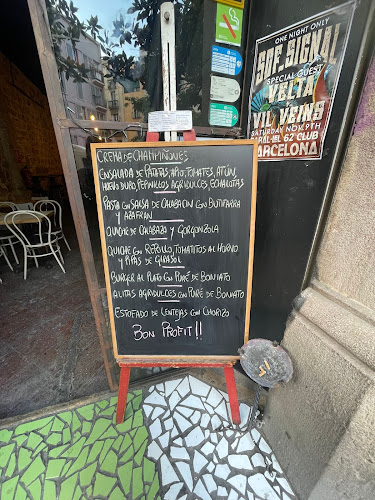 ONE NIGHT ONLY
SAF, SIGNAL
SPECIAL GUEST
VELTA
VIL VEINS
SATURDAY NOV, 9TH
62 CLUB
BARCELONA
CREMA DE CHAMPIÑONES
ENSALADA DE PATATAS, APIO, TOMATES, ATÚN,
HUEVO DURO, PEPINILLOS AGRIDULCES, ECHALOTAS
PASTA CON SALSA DE CALABACÍN CON BUTIFARRA
Y AZAFRAN
QUICHE DE CALABAZA Y GORGONZOLA
QUICHE CON REPOLLO, TOMATITOS AL HORNO
Y PIPAS DE GIRASOL
BURGER AL PLATO CON PURÉ DE BONIATO
ALITAS AGRIDULCES CON PURÉ DE BONIATO
ESTOFADO DE LENTEJAS CON CHORIZO
BON PROFIT!!